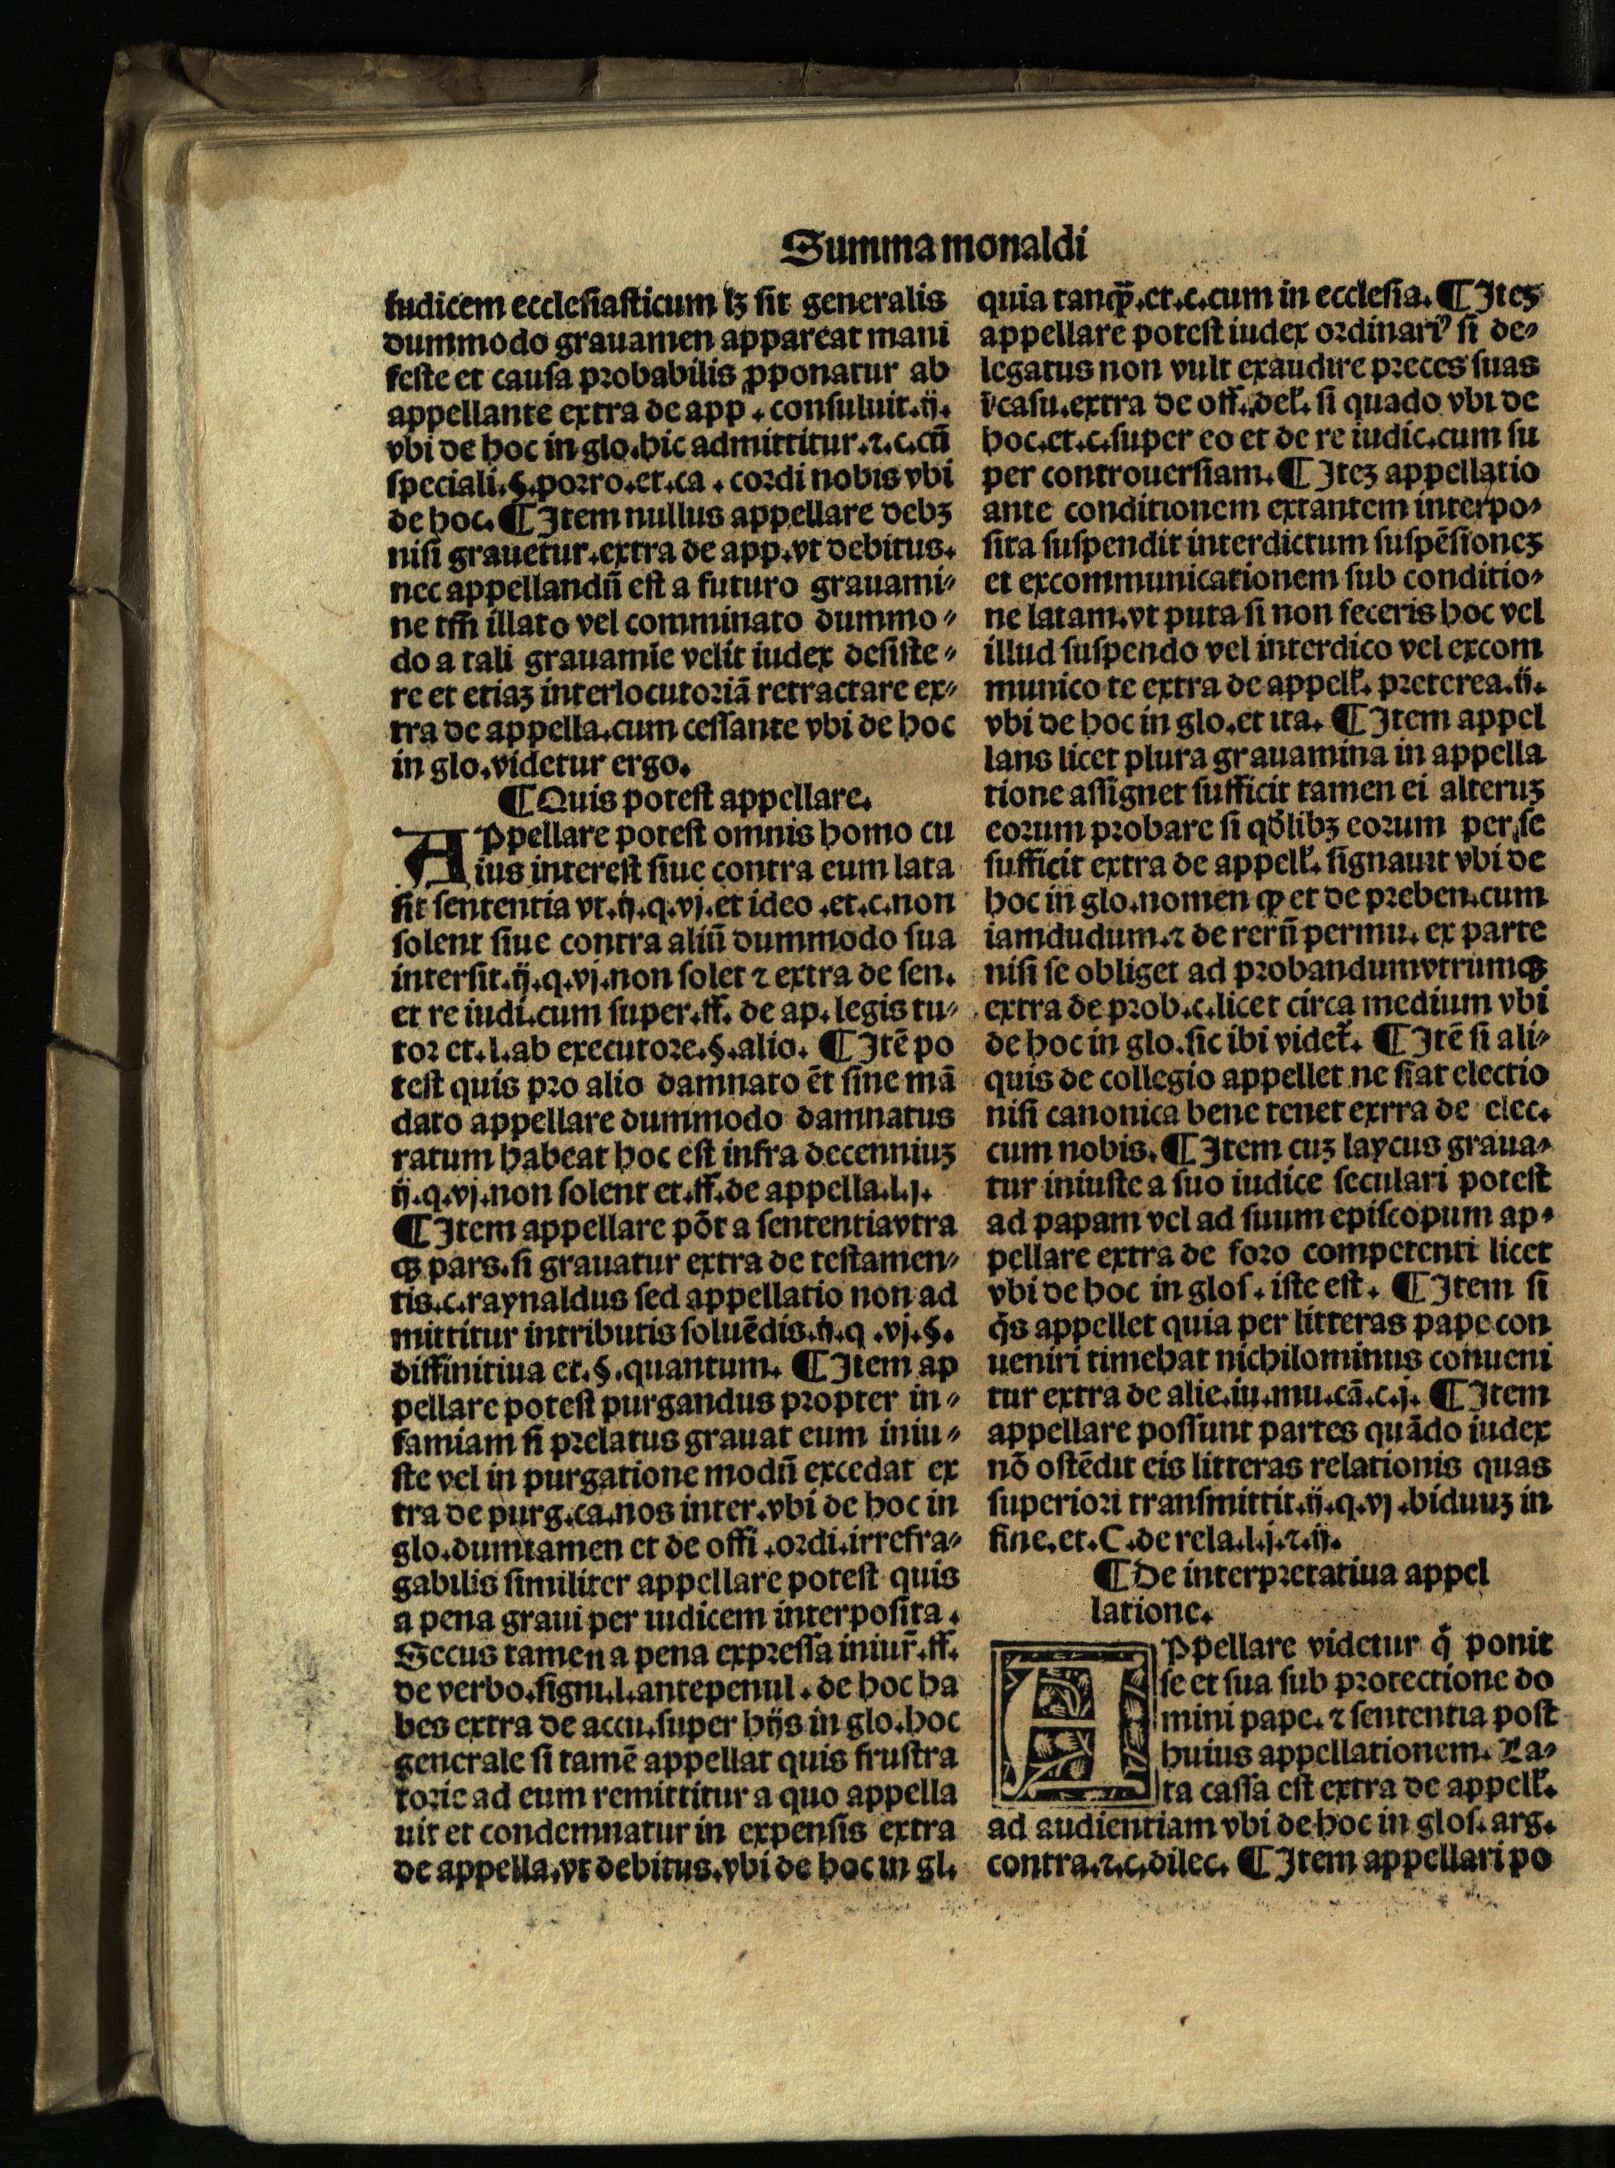 Summa monaldi
iudicem ecclesiasticum lꝫ sit generalis
dummodo grauamen appareat mani
feste et causa probabilis ꝓponatur ab
appellante extra de app. consuluit.ij.
vbi de hoc in glo.hic admittitur.⁊.c.cū
speciali.§.porro.et.ca. cordi nobis vbi
de hoc. ¶ Item nullus appellare debꝫ
nisi grauetur.extra de app.vt debitus.
nec appellandū est a futuro grauami⸗
ne tm̄ illato vel comminato dummo⸗
do a tali grauamīe velit iudex desiste⸗
re et etiaꝫ interlocutoriā retractare ex⸗
tra de appella.cum cessante vbi de hoc
in glo.videtur ergo.
¶ Quis potest appellare.
APpellare potest omnis homo cu
ius interest siue contra eum lata
sit sententia vt.ij.q.vj.et ideo .et.c.non
solent siue contra aliū dummodo sua
intersit.ij.q.vj.non solet ⁊ extra de sen.
et re iudi.cum super.ff. de ap. legis tu⸗
tor et.l.ab executore.§.alio. ¶ Itē po
test quis pro alio damnato ēt sine mā
dato appellare dummodo damnatus
ratum habeat hoc est infra decenniuꝫ
ij.q.vj.non solent et.ff.de appella.l.j.
¶ Item appellare pōt a sententiavtra
qꝫ pars.si grauatur extra de testamen⸗
tis.c.raynaldus sed appellatio non ad
mittitur intributis soluēdis.ij.q .vj.§.
diffinitiua et.§.quantum. ¶ Item ap
pellare potest purgandus propter in⸗
famiam si prelatus grauat eum iniu⸗
ste vel in purgatione modū excedat ex
tra de purg.ca.nos inter.vbi de hoc in
glo.dumtamen et de offi .ordi.irrefra⸗
gabilis similiter appellare potest quis
a pena graui per iudicem interposita.
Secus tamen a pena expressa iniur̄.ff.
de verbo.signi.l.antepenul. de hoc ha
bes extra de accu.super hijs in glo.hoc
generale si tamē appellat quis frustra
torie ad eum remittitur a quo appella
uit et condemnatur in expensis extra
de appella.vt debitus.vbi de hoc in gl.
quia tanqꝫ̄.et.c.cum in ecclesia. ¶ Iteꝫ
appellare potest iudex ordinariꝰ si de⸗
legatus non vult exaudire preces suas
ī casu.extra de off. del̄. si quado vbi de
hoc.et.c.super eo et de re iudic.cum su
per controuersiam. ¶ Iteꝫ appellatio
ante conditionem extantem interpo⸗
sita suspendit interdictum suspēsioneꝫ
et excommunicationem sub conditio⸗
ne latam.vt puta si non feceris hoc vel
illud suspendo vel interdico vel excom
munico te extra de appell̄. preterea.ij.
vbi de hoc in glo.et ita. ¶ Item appel
lans licet plura grauamina in appella
tione assignet sufficit tamen ei alteruꝫ
eorum probare si qđlibꝫ eorum per se
sufficit extra de appell̄. signauit vbi de
hoc in glo.nomen ꝙ et de preben.cum
iamdudum.⁊ de rerū permu. ex parte
nisi se obliget ad probandumvtrumqꝫ
extra de prob.c.licet circa medium vbi
de hoc in glo.sic ibi videt̄. ¶ Itē si ali⸗
quis de collegio appellet ne fiat electio
nisi canonica bene tenet exrra de elec.
cum nobis. ¶ Item cuꝫ laycus graua⸗
tur iniuste a suo iudice seculari potest
ad papam vel ad suum episcopum ap⸗
pellare extra de foro competenti licet
vbi de hoc in glos. iste est. ¶ Item si
q̄s appellet quia per litteras pape con
ueniri timebat nichilominus conueni
tur extra de alie.iu.mu.cā.c.j. ¶ Item
appellare possunt partes quādo iudex
nō ostēdit eis litteras relationis quas
superiori transmittit.ij.q.vj .biduuꝫ in
fine.et.C.de rela.l.j.⁊.ij.
¶ De interpretatiua appel
latione.
APpellare videtur q̄ ponit
se et sua sub protectione do
mini pape. ⁊ sententia post
huius appellationem. La⸗
ta cassa est extra de appell̄.
ad audientiam vbi de hoc in glos. arg.
contra.⁊.c.dilec. ¶ Item appellari po